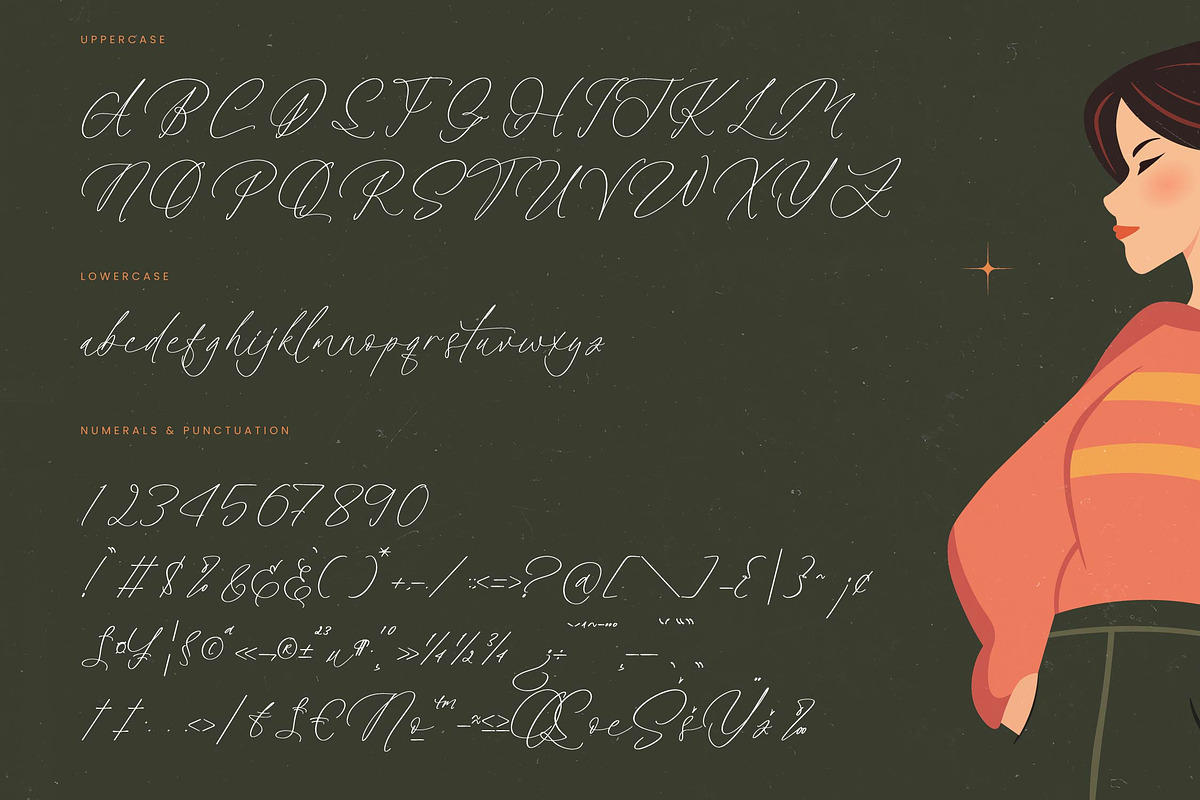 UPPERCASE
ABCDEFGHIJKLM
NOPQRSTUVWXYZ
LOWERCASE
abcdefghijklmnopqrstuvwxyz
NUMERALS & PUNCTUATION
1234567890
! " # $ % & ( ) * + , - . / : ; < = > ? @ [ \ ] _ { | } ~ ¡ ¢
£ ¤ ¥ ¦ § © ª « ¬ ® ± ² ³ µ ¶ · ¸ ¹ º » ¼ ½ ¾ ¿ ÷
† ‡ • . . . ‹ › ⁄ £ € № ™ − ≈ ≤ ≥ Œ œ Š š Ÿ ž